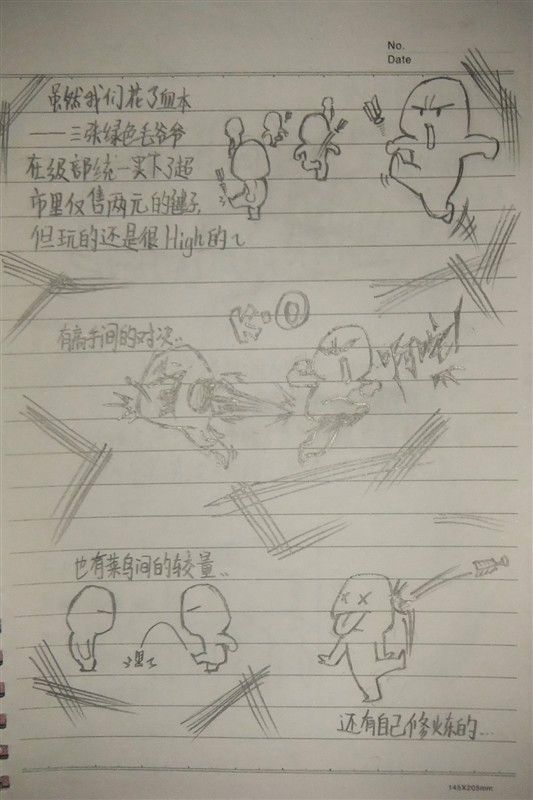 No.
Date
虽然我们花了血本
——三张绿色毛爷爷
在级部统一买下了超
市里仅售两元的毽子,
但玩的还是很High的~
有高手间的对决..
也有菜鸟间的较量..
还有自己修炼的...
145X205mm